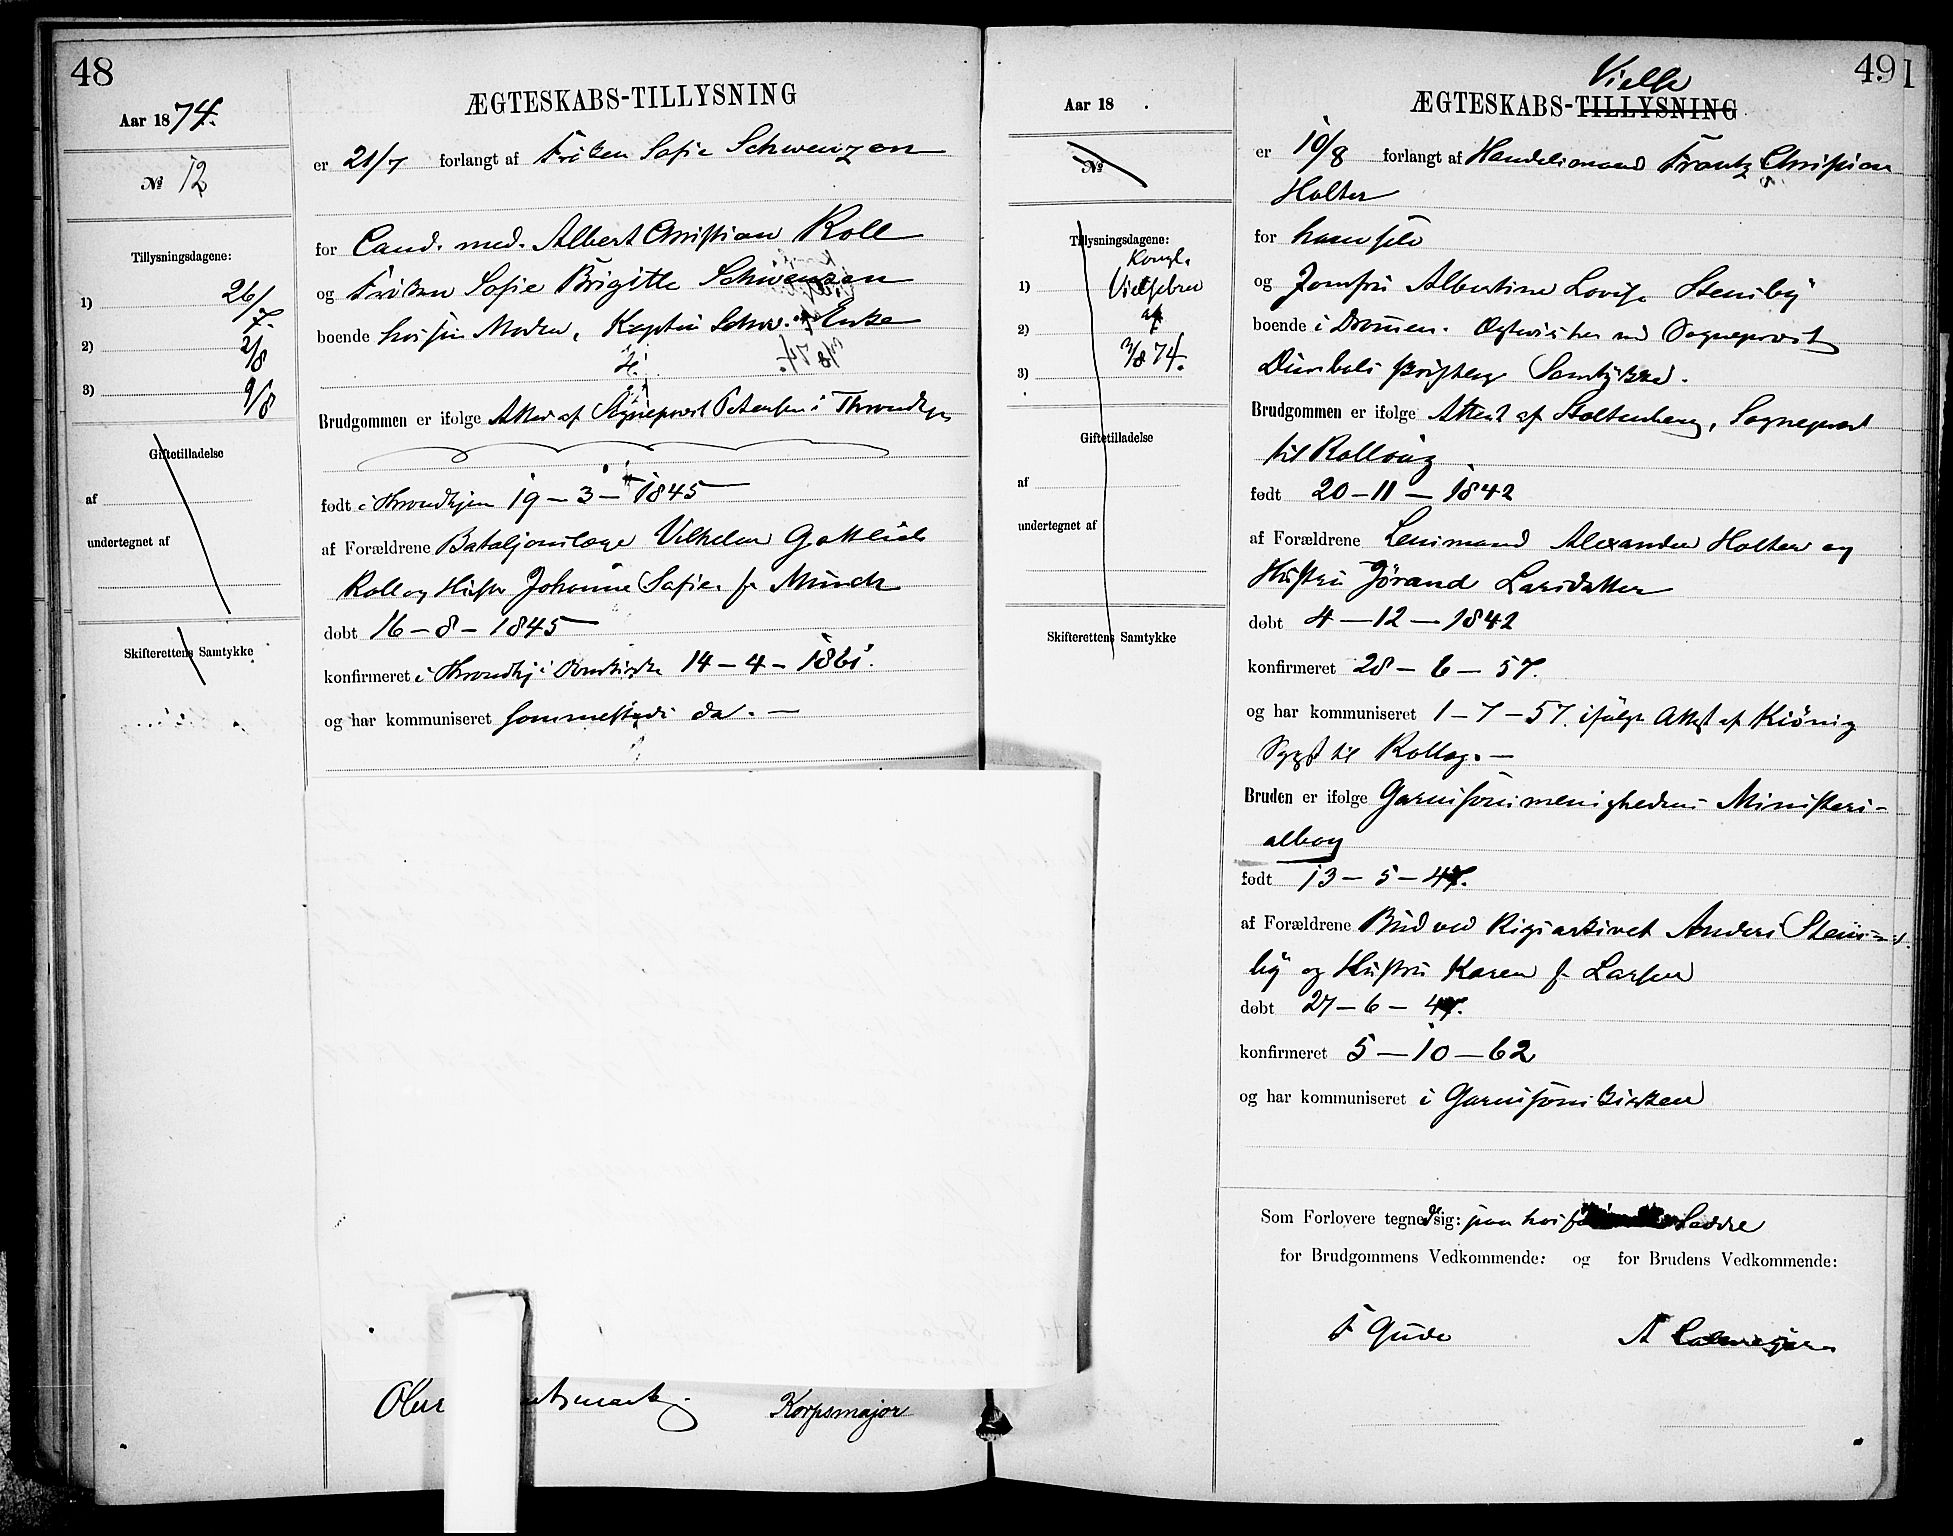 48
Aar 1874.
№ 12
Tillysningsdagene:
1) 26/7.
2) 2/8
3) 9/8
Giftetilladelse
af
undertegnet af
Skifterettens Samtykke
ÆGTESKABS-TILLYSNING
er 21/7 forlangt af Frøken Sofie Schwenzen
for Cand. med. Albert Christian Roll
og Frøken Sofie Brigitte Schwenzen
boende hos sin Moder, Kaptein Schw. Enke
Brudgommen er ifolge Attest af Sogneprest Petersen i Throndhjem
født i Throndhjem 19-3-1845
af Forældrene Bataljonslæge Vilhelm Gottlieb
Roll og Hustru Johanne Sofie f. Münch
døbt 16-8-1845
konfirmeret i Throndhj. Domkirke 14-4-1861.
og har kommuniseret sammesteds da.
Korpsmajor
49
Aar 18 .
№
Tillysningsdagene:
Kongl.
1) Vielsebrev
2) af
3) 3/8 74.
Giftetilladelse
af
undertegnet af
Skifterettens Samtykke
Vielse
ÆGTESKABS-TILLYSNING
er 10/8 forlangt af Handelsmand Frantz Christian
Holter
for ham selv
og Jomfru Albertine Lovise Stensby
boende i Drammen. Ægtevies her med Sogneprest
Brudgommen er ifolge Attest af Stoltenberg, Sogneprest
til Rollaug
født 20-11-1842
af Forældrene Lensmand Alexander Holter og
Hustru Jørand Larsdatter
døbt 4-12-1842
konfirmeret 28-6-57.
og har kommuniseret 1-7-57. ifølge Attest af Kiönig
Sgpst til Rollag.
Bruden er ifolge Garnisonsmenighedens Ministeri-
albog
født 13-5-47.
af Forældrene Bud ved Rigsarkivet Anders Stens-
by og Hustru Karen f. Larsen
døbt 27-6-47.
konfirmeret 5-10-62
og har kommuniseret i Garnisonskirken
Som Forlovere tegnede sig: paa hosf Seddel
for Brudgommens Vedkommende: og for Brudens Vedkommende:
F Gude